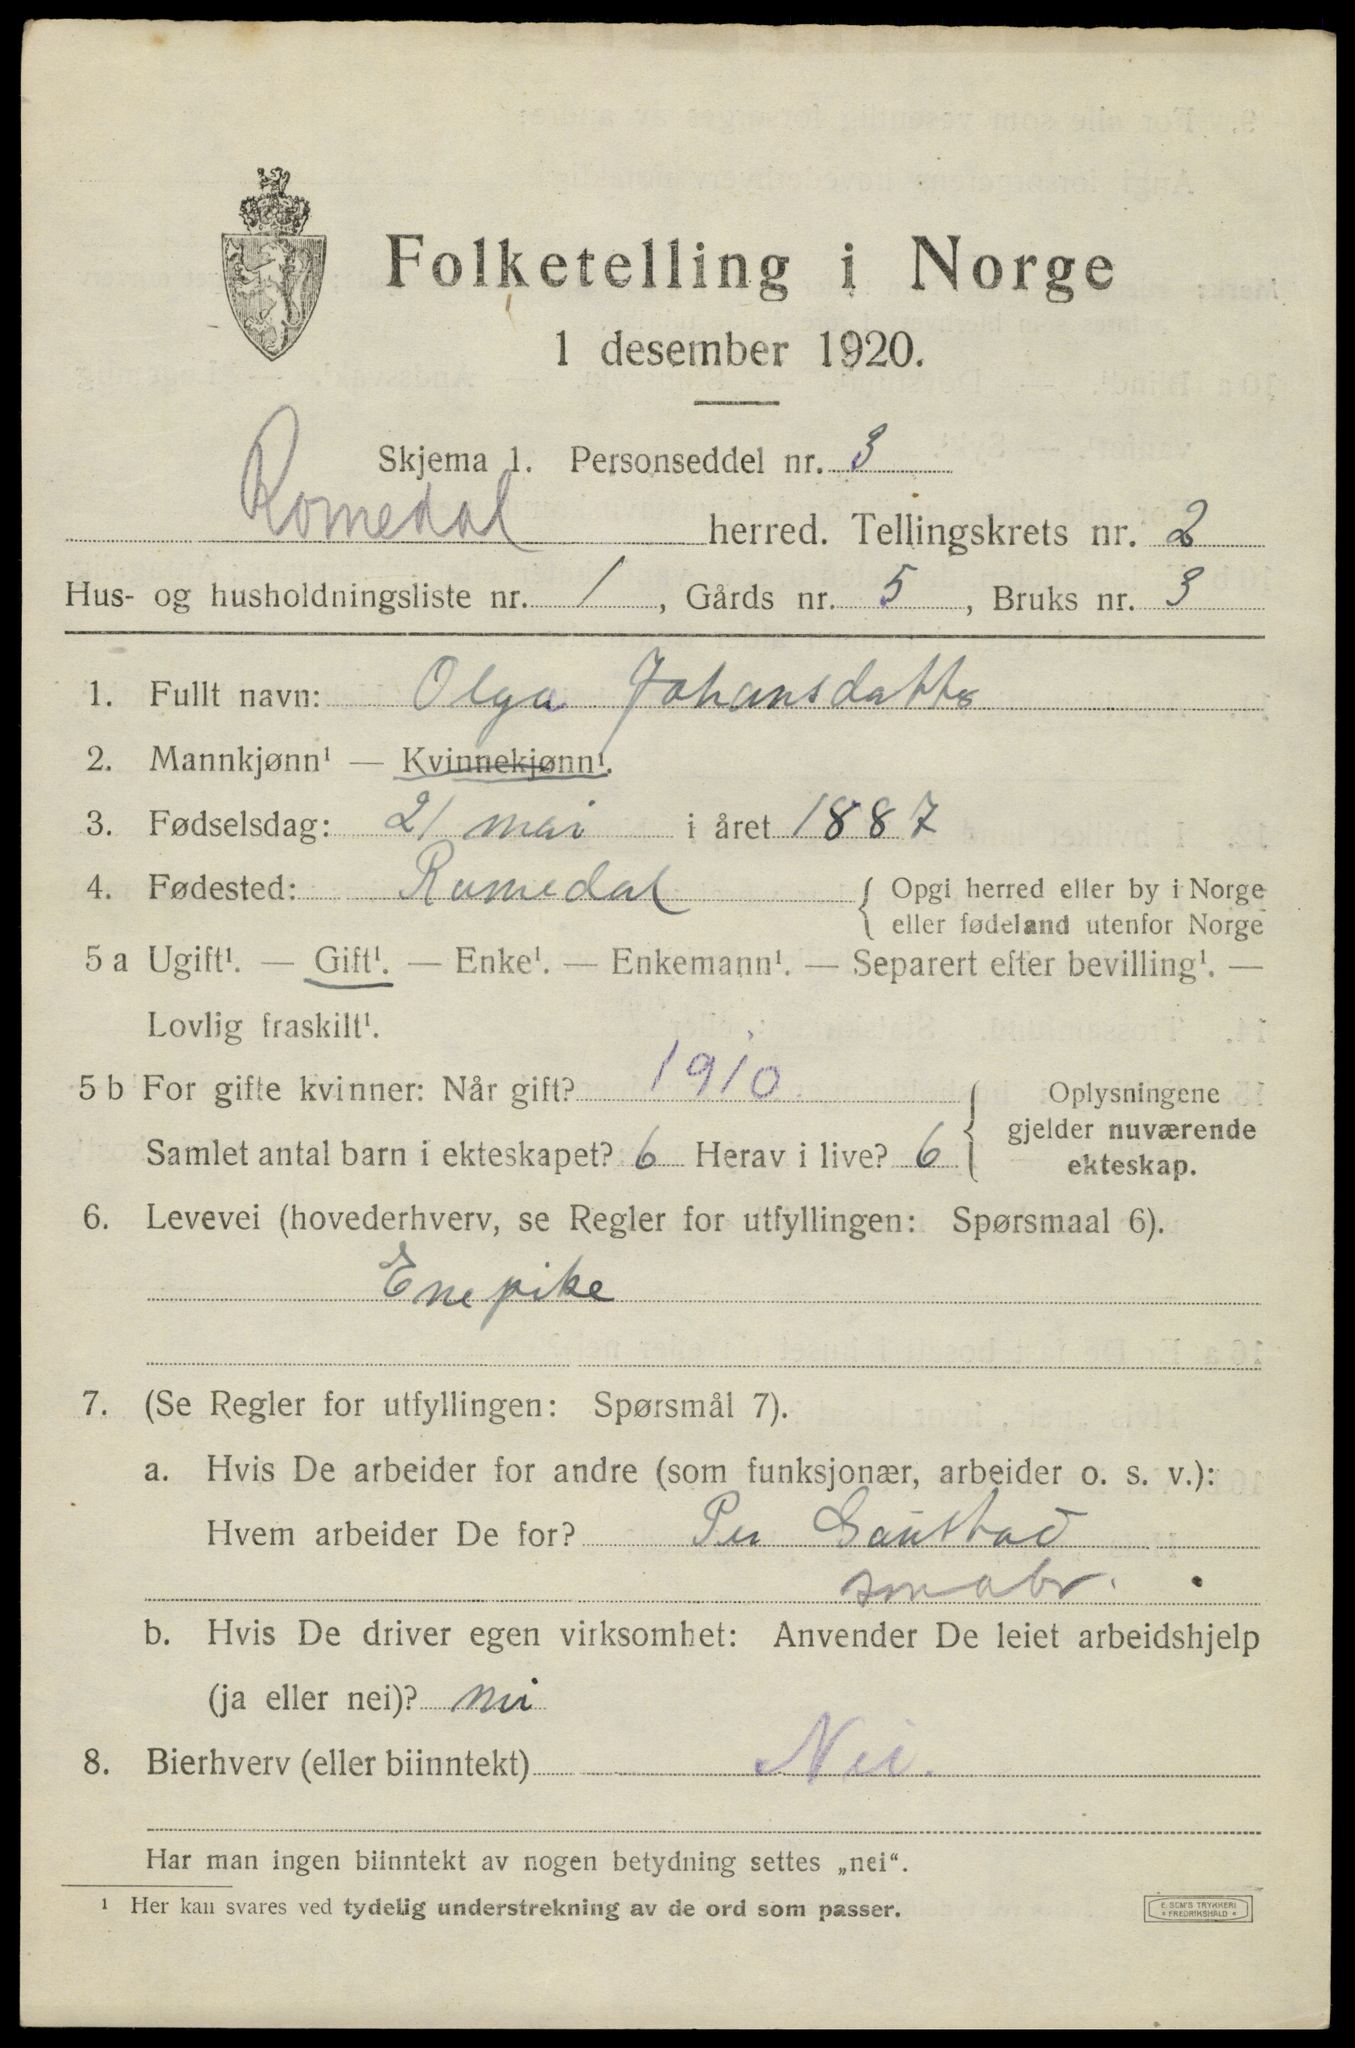 Folketelling i Norge
1 desember 1920.
Skjema 1. Personseddel nr. 3
Romedal herred. Tellingskrets nr. 2
Hus- og husholdningsliste nr. 1, Gårds nr. 5, Bruks nr. 3
1. Fullt navn: Olga Johansdatter
2. Mannkjønn¹ — Kvinnekjønn¹.
3. Fødselsdag: 21 mai i året 1887
4. Fødested: Romedal { Opgi herred eller by i Norge
eller fødeland utenfor Norge
5 a Ugift¹. — Gift¹. — Enke¹. — Enkemann¹. — Separert efter bevilling¹. —
Lovlig fraskilt¹.
5 b For gifte kvinner: Når gift? 1910.
Samlet antal barn i ekteskapet? 6 Herav i live? 6
{ Oplysningene
gjelder nuværende
ekteskap.
6. Levevei (hovederhverv, se Regler for utfyllingen: Spørsmaal 6).
Enepike
7. (Se Regler for utfyllingen: Spørsmål 7).
a. Hvis De arbeider for andre (som funksjonær, arbeider o. s. v.):
Hvem arbeider De for? Per Gaustad
smabr.
b. Hvis De driver egen virksomhet: Anvender De leiet arbeidshjelp
(ja eller nei)? nei
8. Bierhverv (eller biinntekt) Nei.
Har man ingen biinntekt av nogen betydning settes „nei“.
¹ Her kan svares ved tydelig understrekning av de ord som passer.
E. SEM'S TRYKKERI
* FREDRIKSHALD *